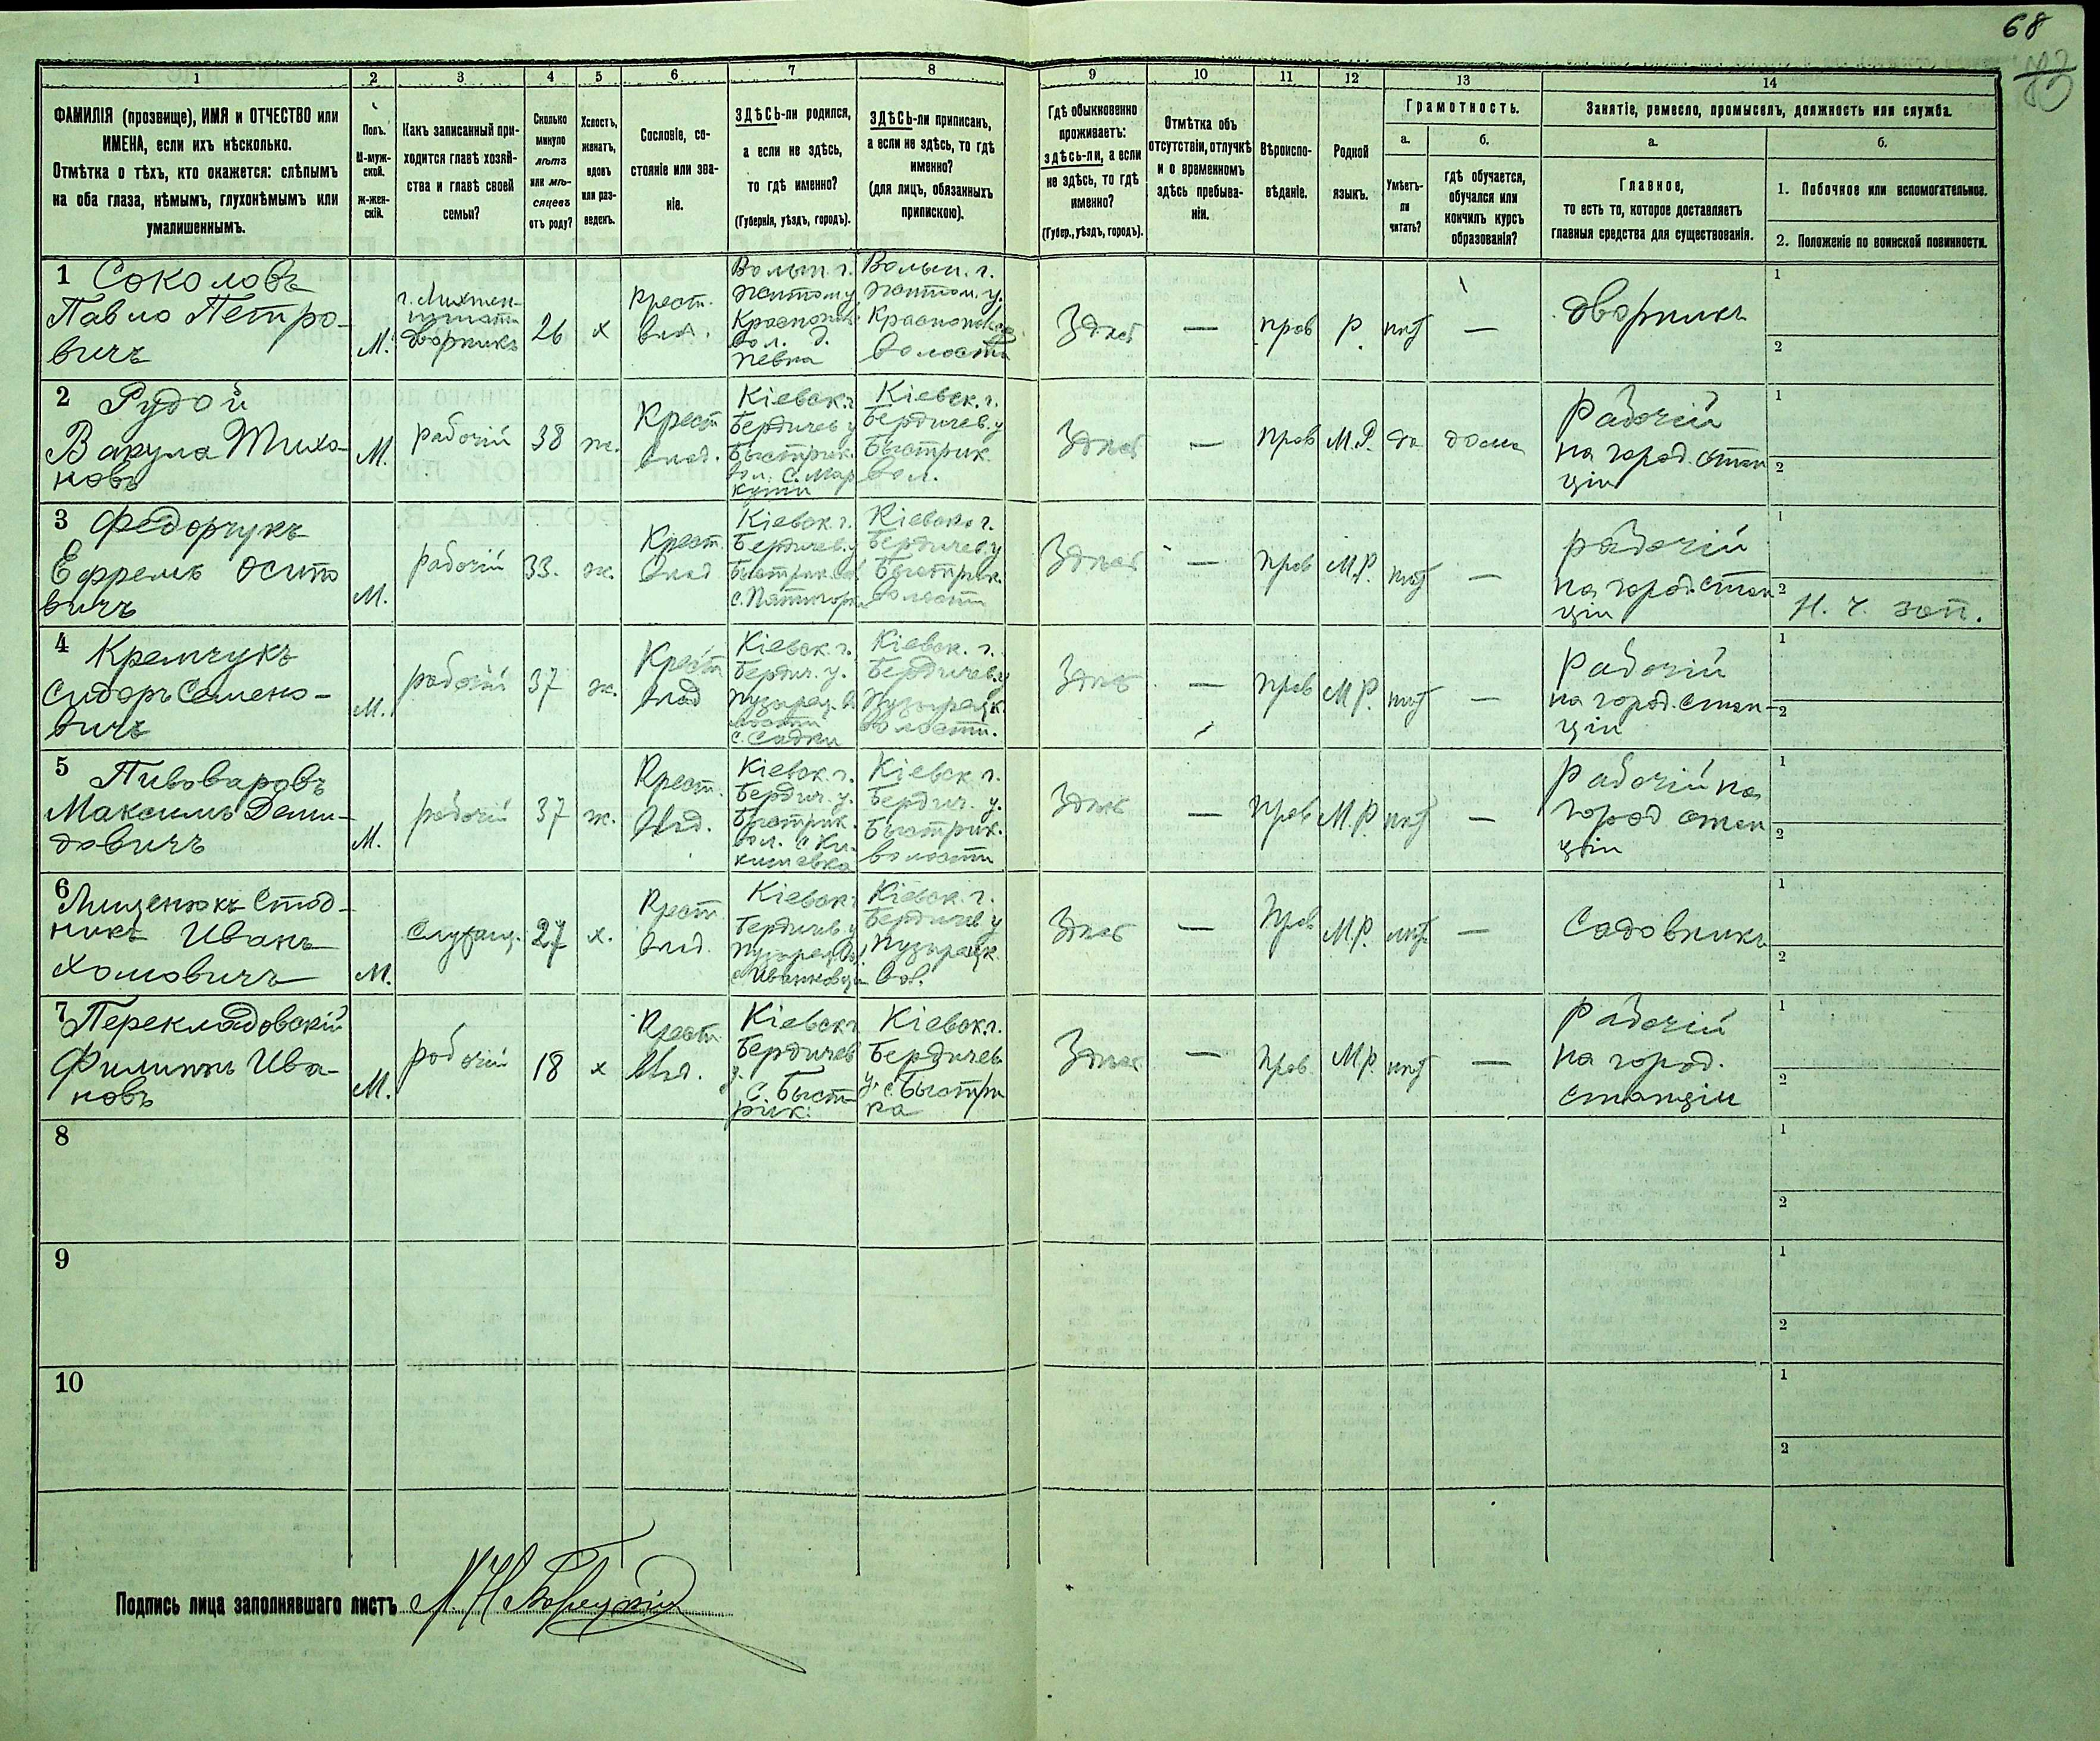 68
1
2
3
4
5
6
7
8
9
10
11
12
13
14
ФАМИЛІЯ (прозвище), ИМЯ и ОТЧЕСТВО или
ИМЕНА, если ихъ нѣсколько.
Отмѣтка о тѣхъ, кто окажется: слѣпымъ
на оба глаза, нѣмымъ, глухонѣмымъ или
умалишеннымъ.
Полъ.
М-муж-
ской.
Ж-жен-
скій.
Какъ записанный при-
ходится главѣ хозяй-
ства и главѣ своей
семьи?
Сколько
минуло
лѣтъ
или мѣ-
сяцевъ
отъ роду?
Холостъ,
женатъ,
вдовъ
или раз-
веденъ.
Сословіе, со-
стояніе или зва-
ніе.
ЗДѢСЬ-ли родился,
а если не здѣсь,
то гдѣ именно?
(Губернія, уѣздъ, городъ).
ЗДѢСЬ-ли приписанъ,
а если не здѣсь, то гдѣ
именно?
(для лицъ, обязанныхъ
припискою).
Гдѣ обыкновенно
проживаетъ:
здѣсь-ли, а если
не здѣсь, то гдѣ
именно?
(Губер., уѣздъ, городъ).
Отмѣтка объ
отсутствіи, отлучкѣ
и о временномъ
здѣсь пребыва-
ніи.
Вѣроиспо-
вѣданіе.
Родной
языкъ.
Грамотность.
а.
Умѣетъ-
ли
читать?
б.
гдѣ обучается,
обучался или
кончилъ курсъ
образованія?
Занятіе, ремесло, промыселъ, должность или служба.
а.
Главное,
то есть то, которое доставляетъ
главныя средства для существованія.
б.
1. Побочное или вспомогательное.
2. Положеніе по воинской повинности.
1 Соколовъ
Павло Петро-
вичъ
М.
дворникъ
26
х
Крест.
влад.
Волын. г.
Житом. у.
вол. д.
певка
Волын. г.
Житом. у.
волости
Здѣсь
—
прав
Р.
нѣт
—
дворникъ
1
2
2 Рудой
Вакула Тихо-
новъ
М.
рабочій
38
ж.
Крест
влад.
Кіевск. г.
Бердичев у
Быстрик.
вол. с. Мар
куши
Кіевск. г.
Бердичев. у
Быстрик.
вол.
Здѣсь
—
прав
М.Р.
да
дома
Рабочій
на город. стан
ціи
1
2
3 Федорчукъ
Ефремъ Осипо
вичъ
М.
рабочій
33.
ж.
Крест.
влад
Кіевск. г.
Бердичев. у
Быстрик. вол
с. Пятигорка
Кіевск. г.
Бердичев. у
Быстрик.
волости
Здѣсь
—
прав
М.Р.
нѣт
—
рабочій
на город. стан
ціи
1
2
Н. ч. зап.
4 Кремчукъ
Сидоръ Семено-
вичъ
М.
рабочій
37
ж.
Крест
влад
Кіевск. г.
Бердич. у.
Пузырец. во
лости
с. Садки
Кіевск. г.
Бердичев. у
Пузырецк.
волости.
Здѣсь
—
прав
М.Р.
нѣт
—
Рабочій
на город. стан-
ціи
1
2
5 Пивоваровъ
Максимъ Деми-
довичъ
М.
рабочій
37
ж.
Крест.
влад.
Кіевск. г.
Бердич. у.
Быстрик.
вол. с Ки-
кишевка
Кіевск. г.
Бердич. у.
Быстрик.
волости
Здѣсь
—
прав
М.Р.
нѣт
—
Рабочій на
город стан
ціи
1
2
6
Ивань
Хомовичъ
М.
Служащ.
27
х.
Крест
влад.
Кіевск г
Бердичев у
Пузырец. вол.
с. Иванковцы
Кіевск. г.
Бердичев у
Пузырецк.
вол.
Здѣсь
—
Прав
М.Р.
нѣт
—
Садовникъ
1
2
7 Перекладовскій
Филиппъ Ива-
новъ
М.
рабочій
18
х
Крест.
влад.
Кіевск г
Бердичев
у.
с. Быст-
рик.
Кіевск. г.
Бердичев
у. с. Быстри
ка
Здѣсь
—
Прав.
М.Р.
нѣт
—
Рабочій
на город.
станціи
1
2
8
1
2
9
1
2
10
1
2
Подпись лица заполнявшаго листъ